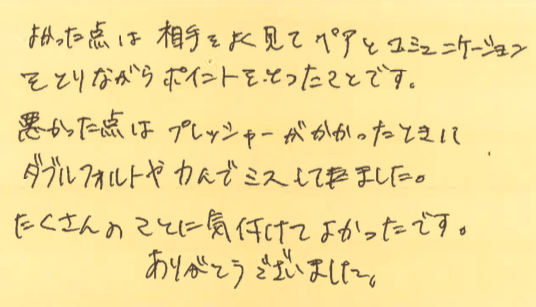 よかった点は 相手をよく見て ペアとコミュニケーション
をとりながらポイントをとったことです。
悪かった点はプレッシャーがかかったときに
ダブルフォルトや力んでミスして来ました。
たくさんのことに気付けてよかったです。
ありがとうございました。